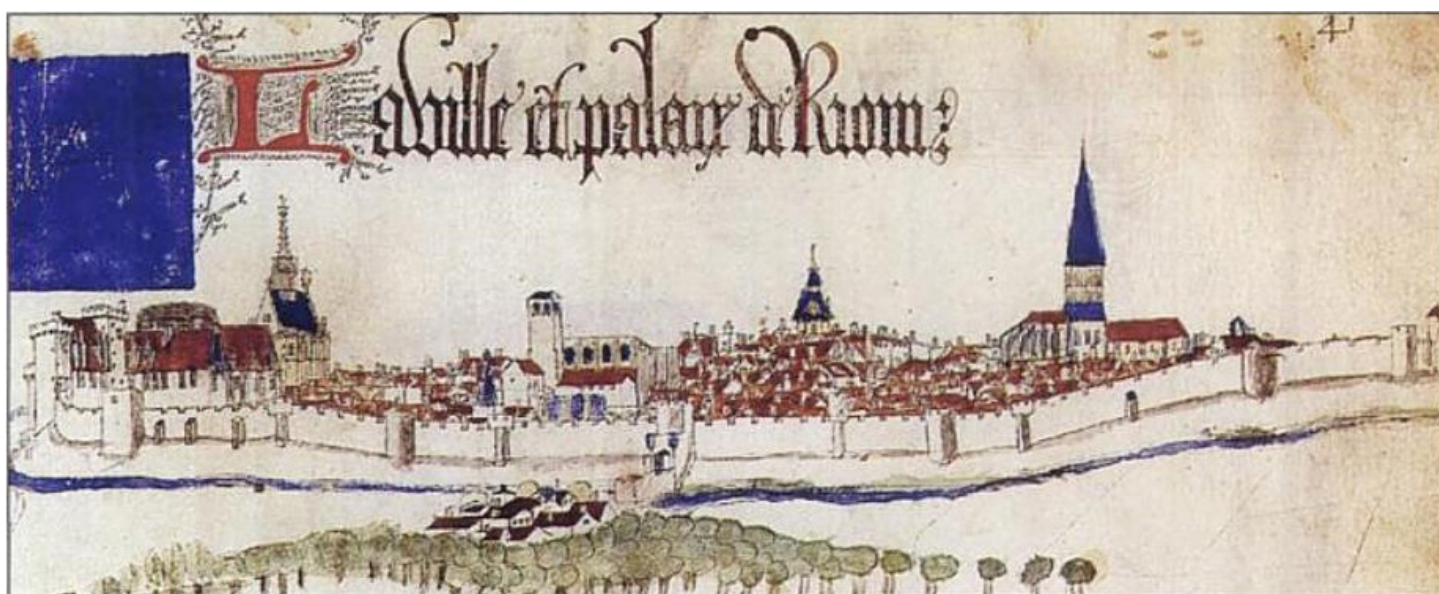 La ville et palaix de Riom :
41